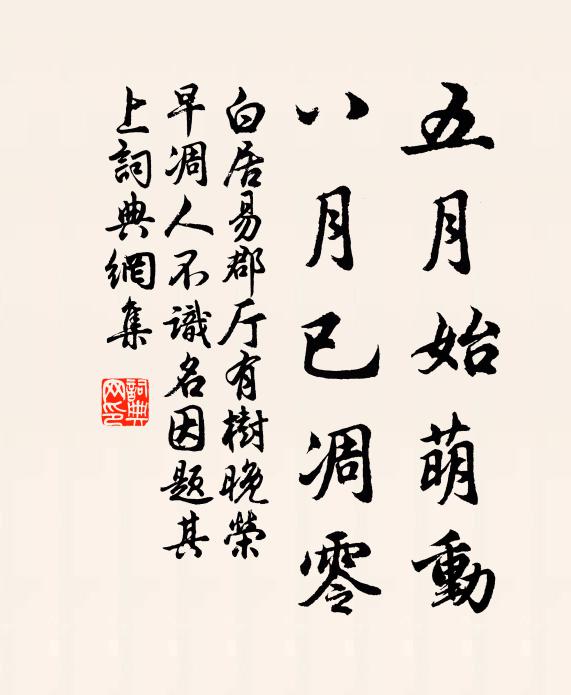 五月始萌動
八月已凋零
白居易郡厅有樹晚榮
早凋人不識名因题其
上詞典網集
詞典网印